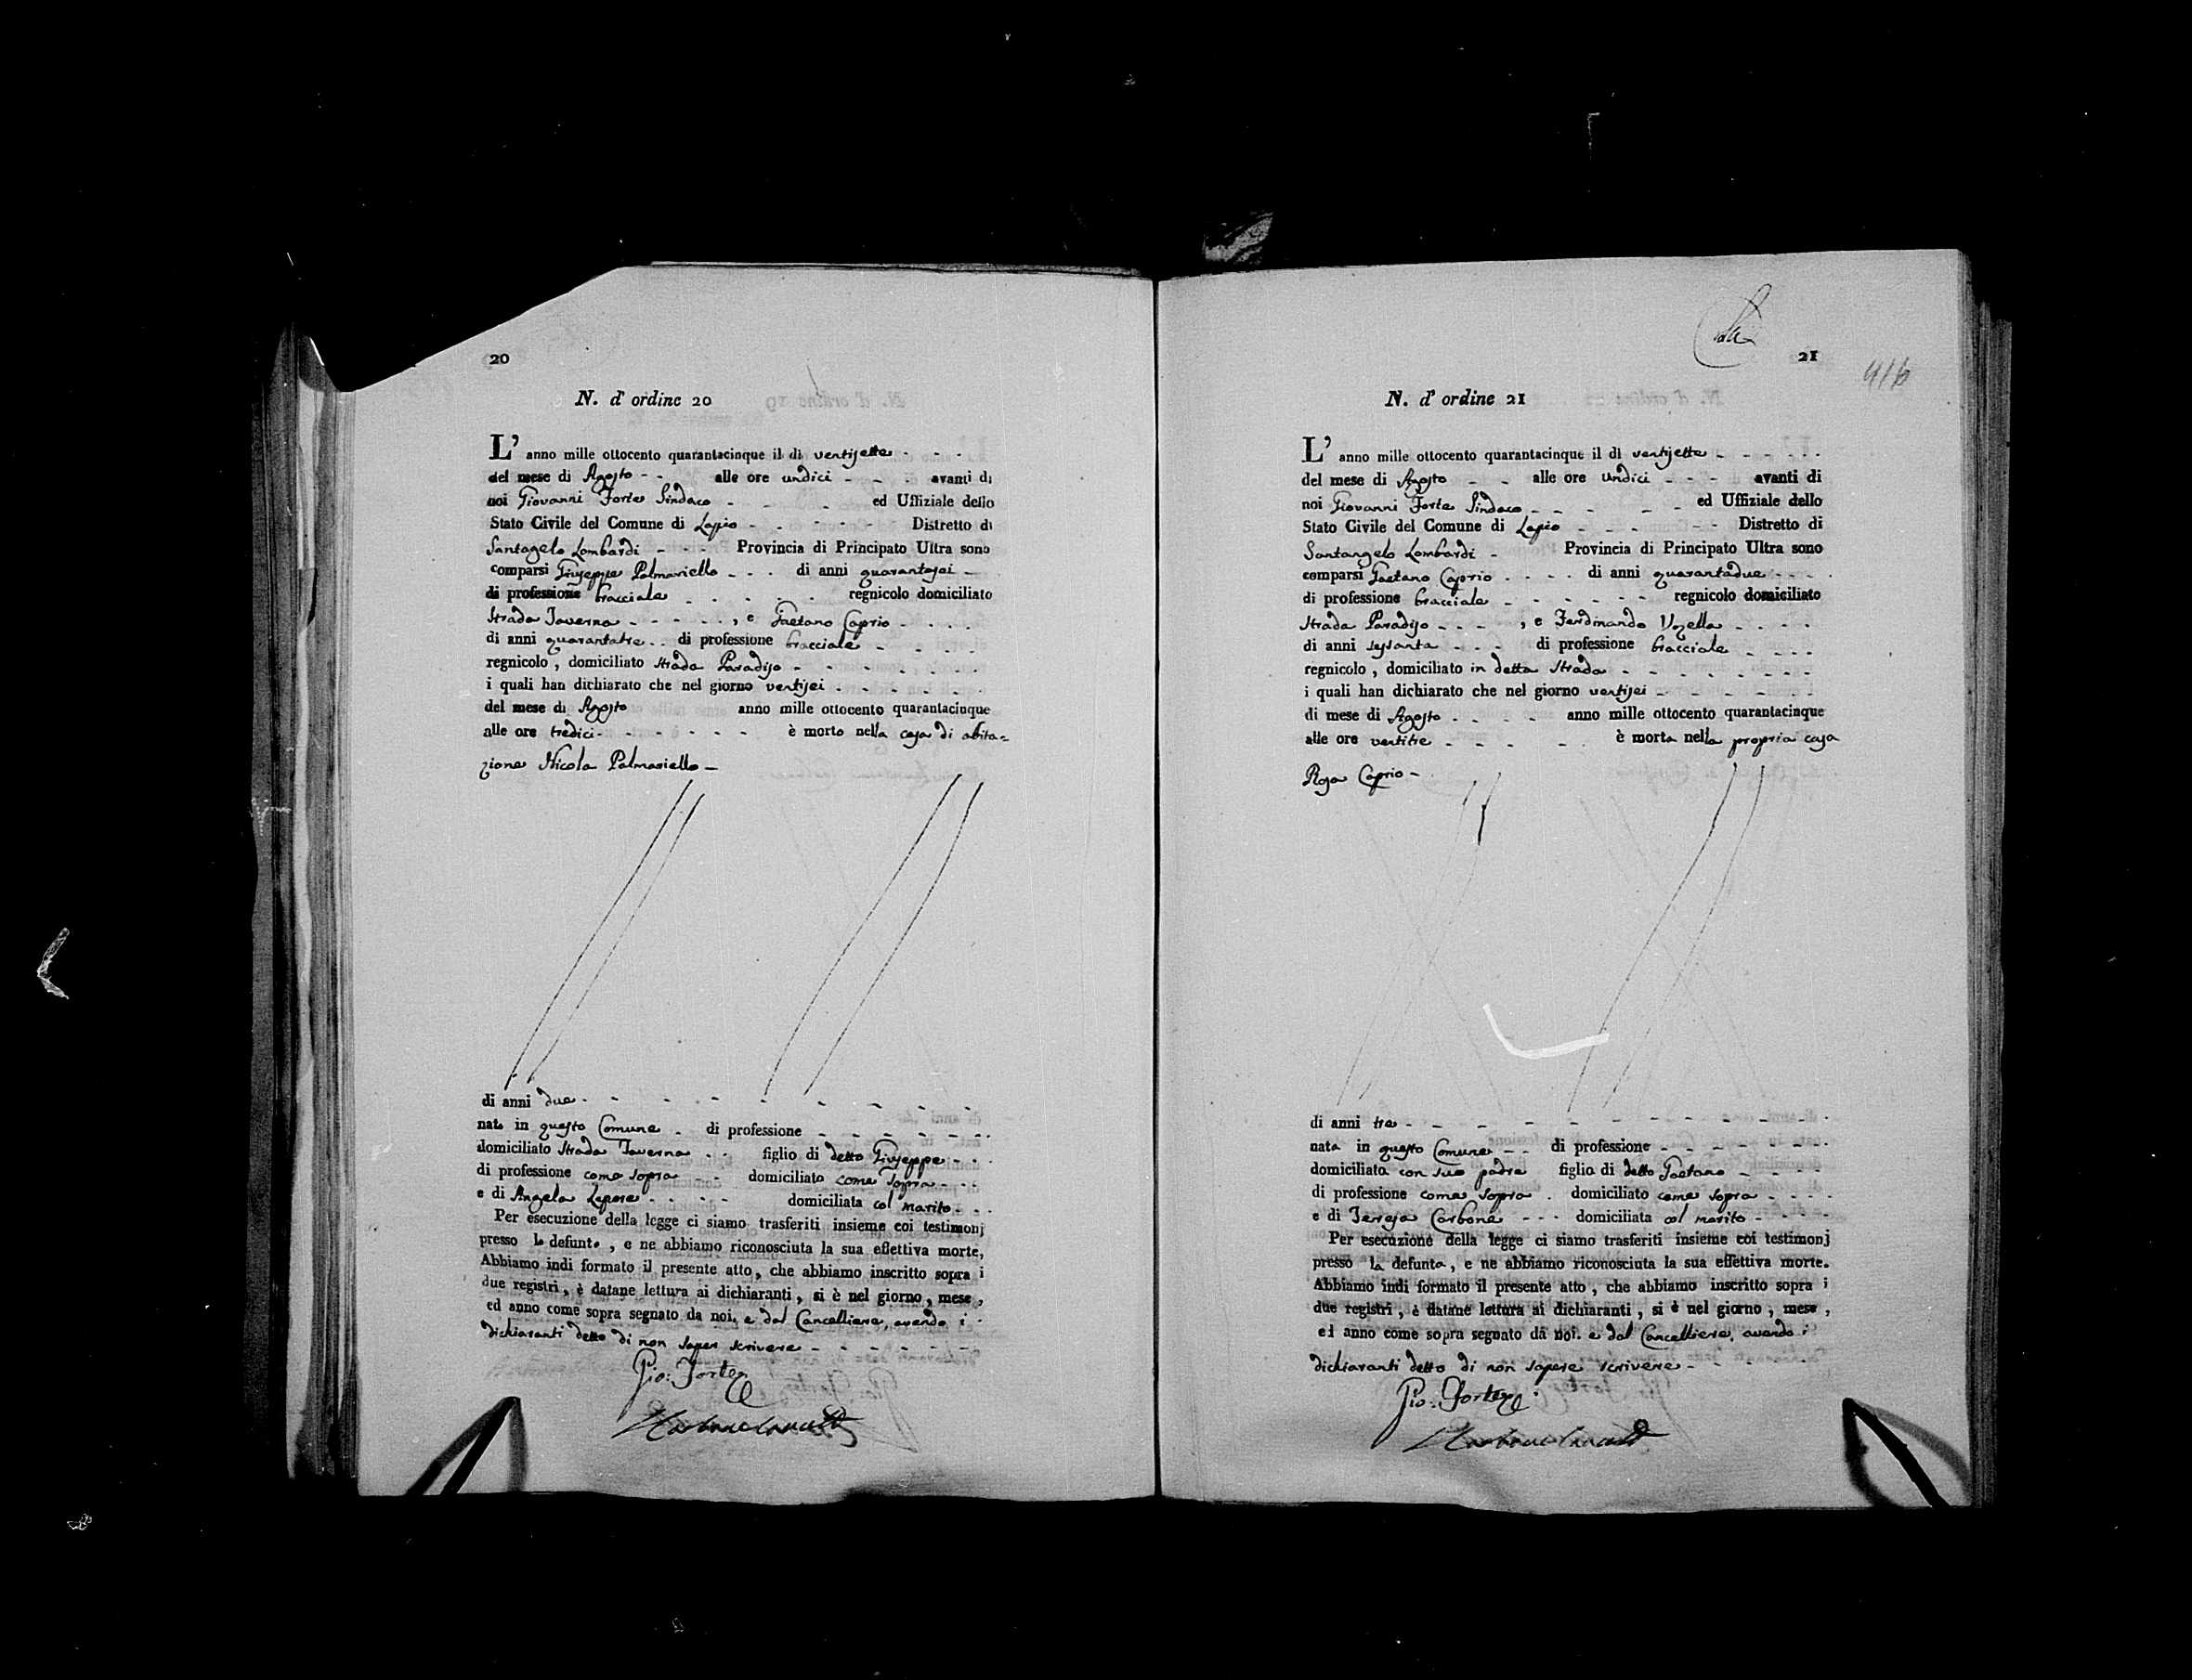 20
N. d' ordine 20
L' anno mille ottocento quarantacinque il di ventisette
del mese di Agosto alle ore undici avanti di
noi Giovanni Forte Sindaco ed Uffiziale dello
Stato Civile del Comune di Lapio Distretto di
Santagelo Lombardi Provincia di Principato Ultra sono
comparsi Giuseppe Palmariello di anni quarantasei
di professione bracciale regnicolo domiciliato
Strada Taverna , e Gaetano Caprio
di anni quarantatre di professione bracciale
regnicolo , domiciliato Strada Paradiso
i quali han dichiarato che nel giorno ventisei
del mese di Agosto anno mille ottocento quarantacinque
alle ore tredici è morto nella casa di abita=
zione Nicola Palmariello
di anni due
nato in questo Comune di professione
domiciliato Strada Taverna figlio di detto Giuseppe
di professione come sopra domiciliato come sopra
e di Angela Lepore domiciliata col marito
Per esecuzione della legge ci siamo trasferiti insieme coi testimonj
presso lo defunto , e ne abbiamo riconosciuta la sua effettiva morte,
Abbiamo indi formato il presente atto , che abbiamo inscritto sopra i
due registri , è datane lettura ai dichiaranti , si è nel giorno , mese ,
ed anno come sopra segnato da noi, e dal Cancelliere, avendo i
dichiaranti detto di non saper scrivere
Gio: Forte
21
416
N. d' ordine 21
L' anno mille ottocento quarantacinque il di ventisette
del mese di Agosto alle ore undici avanti di
noi Giovanni Forte Sindaco ed Uffiziale dello
Stato Civile del Comune di Lapio Distretto di
Santangelo Lombardi Provincia di Principato Ultra sono
comparsi Gaetano Caprio di anni quarantadue
di professione bracciale regnicolo domiciliato
Strada Paradiso , e Ferdinando Vozella
di anni sessanta di professione bracciale
regnicolo , domiciliato in detta Strada
i quali han dichiarato che nel giorno ventisei
di mese di Agosto anno mille ottocento quarantacinque
alle ore ventitre è morta nella propria casa
Rosa Caprio
di anni tre
nata in questo Comune di professione
domiciliata con suo padre figlio di detto Gaetano
di professione come sopra domiciliato come sopra
e di Terresa Carbone domiciliata col marito
Per esecuzione della legge ci siamo trasferiti insieme coi testimonj
presso la defunta, e ne abbiamo riconosciuta la sua effettiva morte.
Abbiamo indi formato il presente atto , che abbiamo inscritto sopra i
due registri , è datane lettura ai dichiaranti , si è nel giorno , mese ,
ed anno come sopra segnato da noi. e dal Cancelliere, avendo i
dichiaranti detto di non sapere scrivere
Gio: Forte